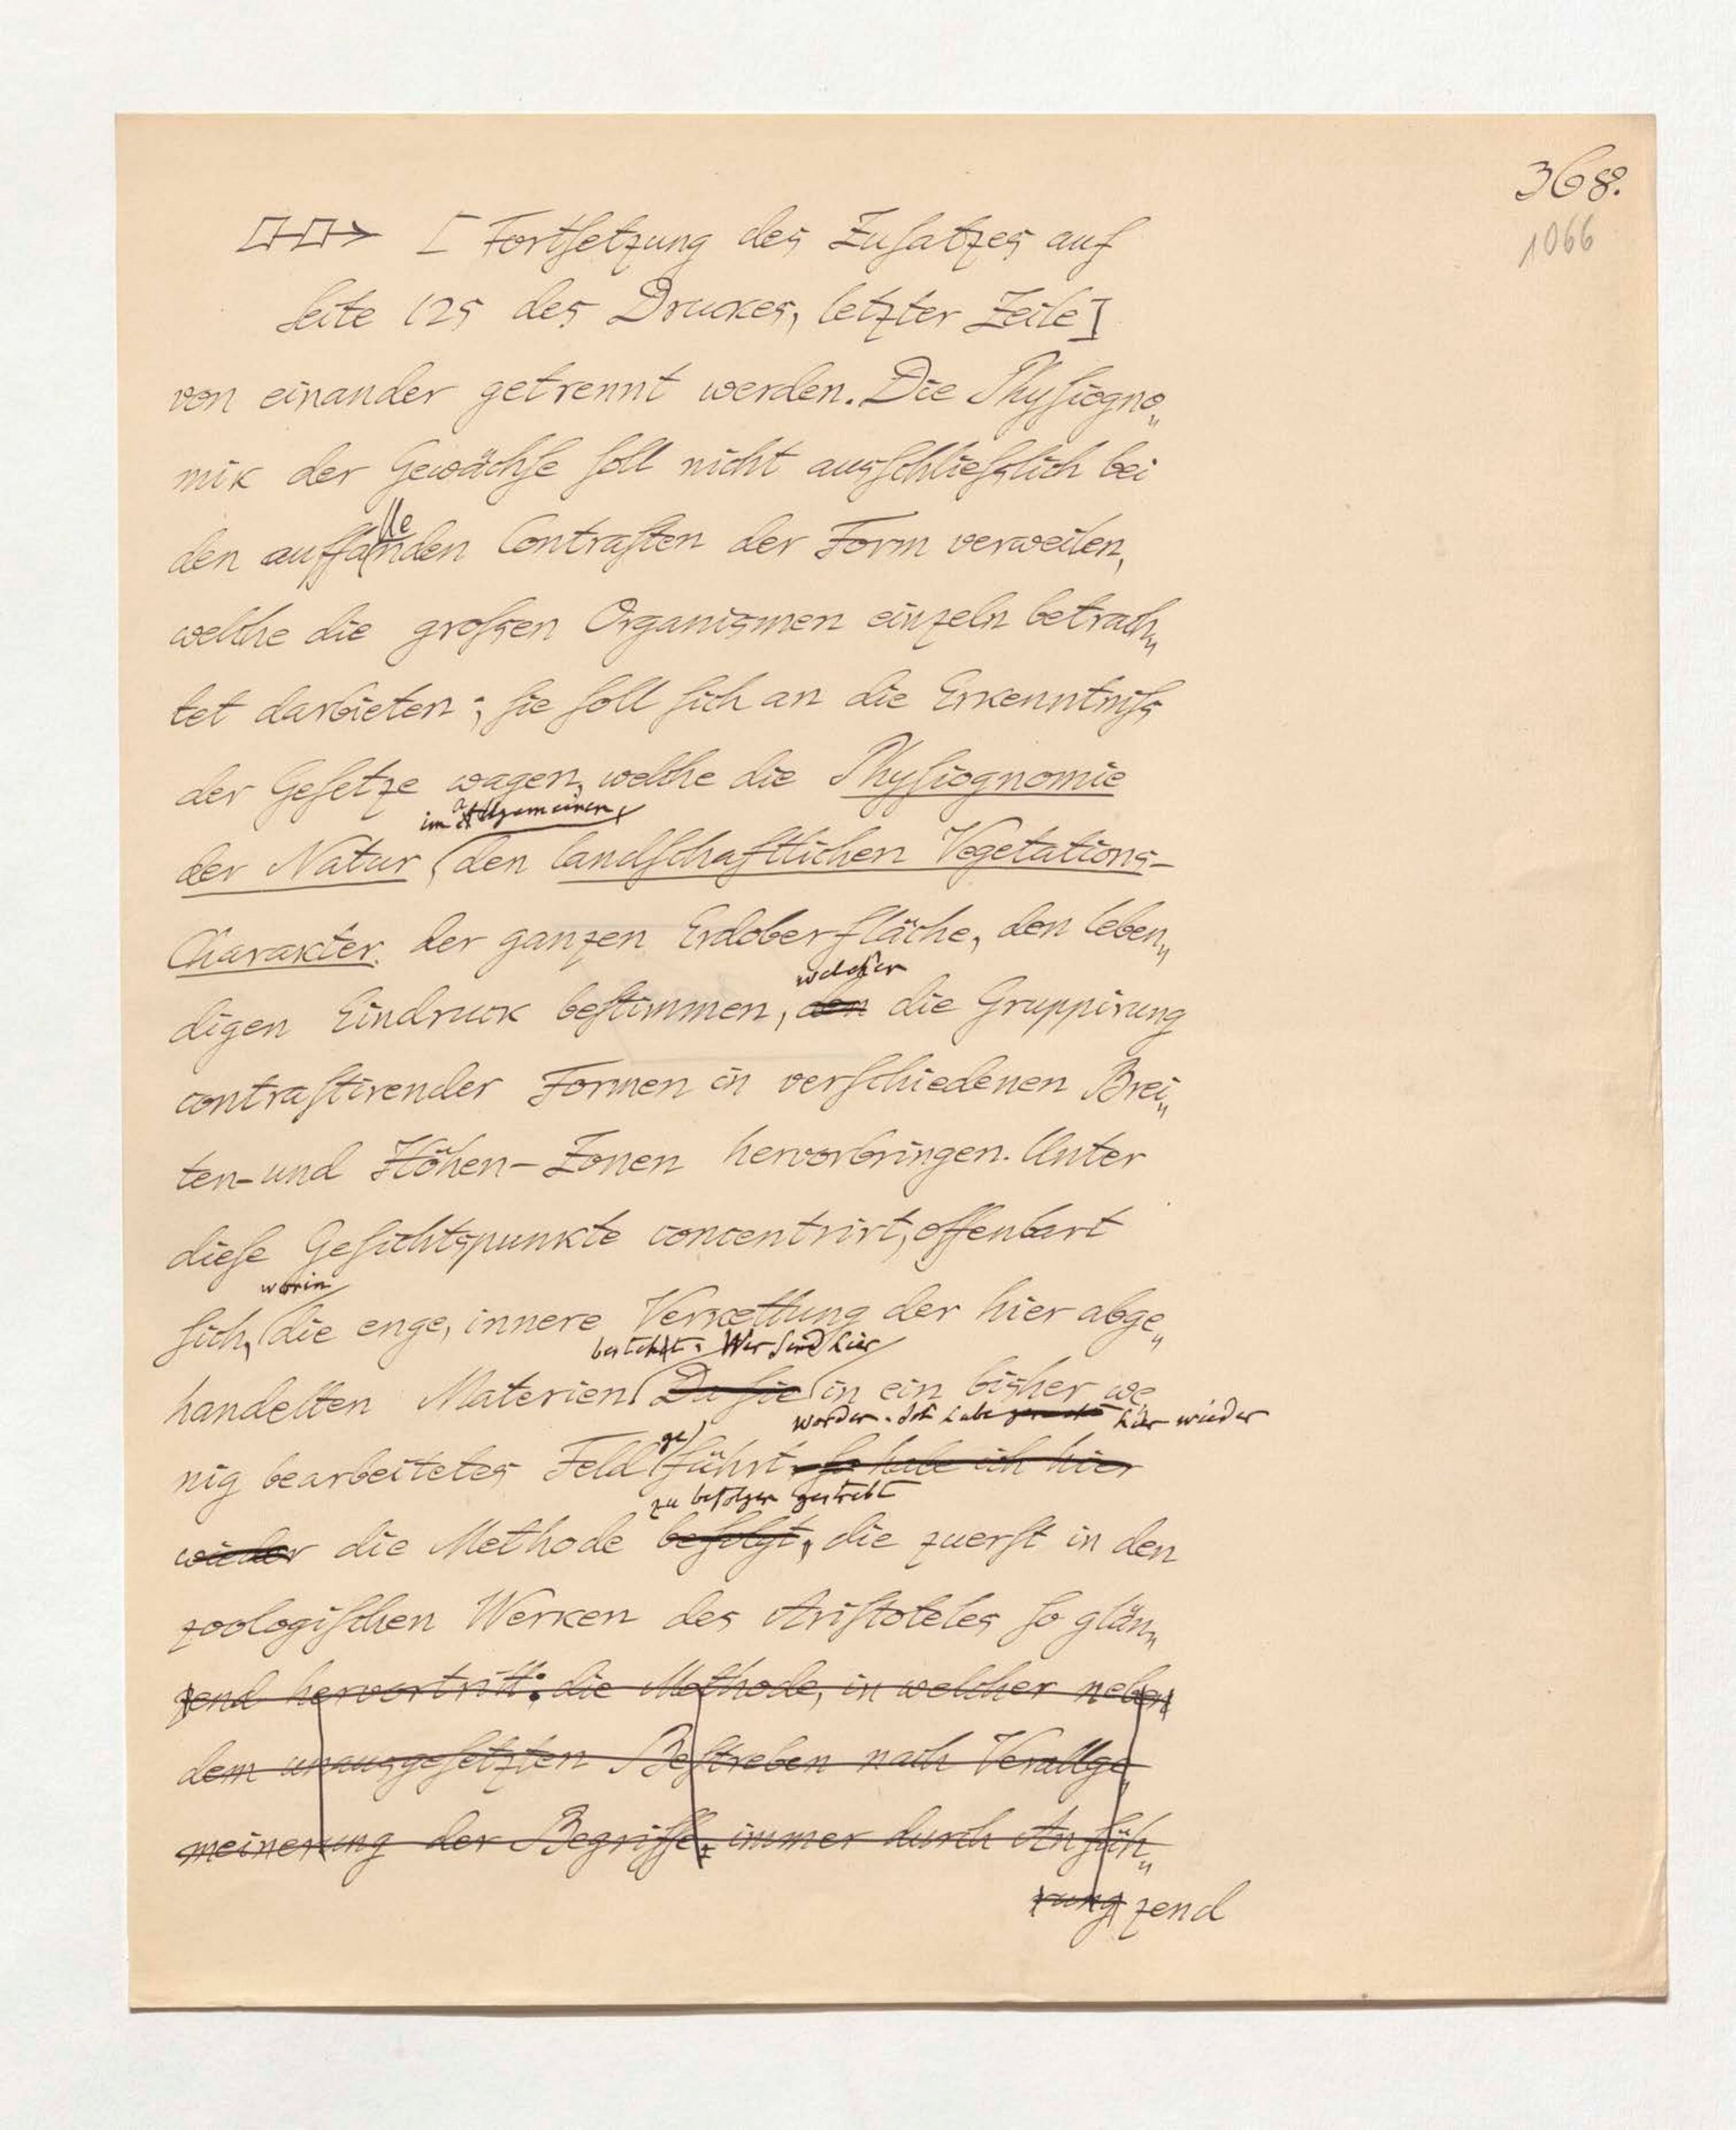 368.
1066
[Fortsetzung des Zusatzes auf
Seite 125 des Druckes, letzter Zeile]
von einander getrennt werden. Die Physiogno„
mik der Gewächse soll nicht ausschließlich bei
lle
den auffanden Contrasten der Form verweilen,
welche die großen Organismen einzeln betrach„
tet darbieten; sie soll sich an die Erkenntniß
der Gesetze wagen, welche die Physiognomie
im allgemeinen,
der Natur den landschaftlichen Vegetations-
Charakter der ganzen Erdoberfläche, den leben„
welchen
digen Eindruck bestimmen, den die Gruppirung
contrastirender Formen in verschiedenen Brei„
ten- und Höhen-Zonen hervorbringen. Unter
diese Gesichtspunkte concentrirt, offenbart
worin
sich, die enge, innere Verkettung der hier abge„
besteht. Wir sind hier
handelten Materien Da sie in ein bisher we
worden. Ich habe hier wieder
ge
nig bearbeitetes Feld führt, so habe ich hier
zu befolgen gestrebt
wieder die Methode befolgt, die zuerst in den
zoologischen Werken des Aristoteles so glän„
zend hervortritt: die Methode, in welcher neben
dem unausgesetzten Bestreben nach Verallge„
meinerung der Begriffe, immer durch Anfüh„
rung zend